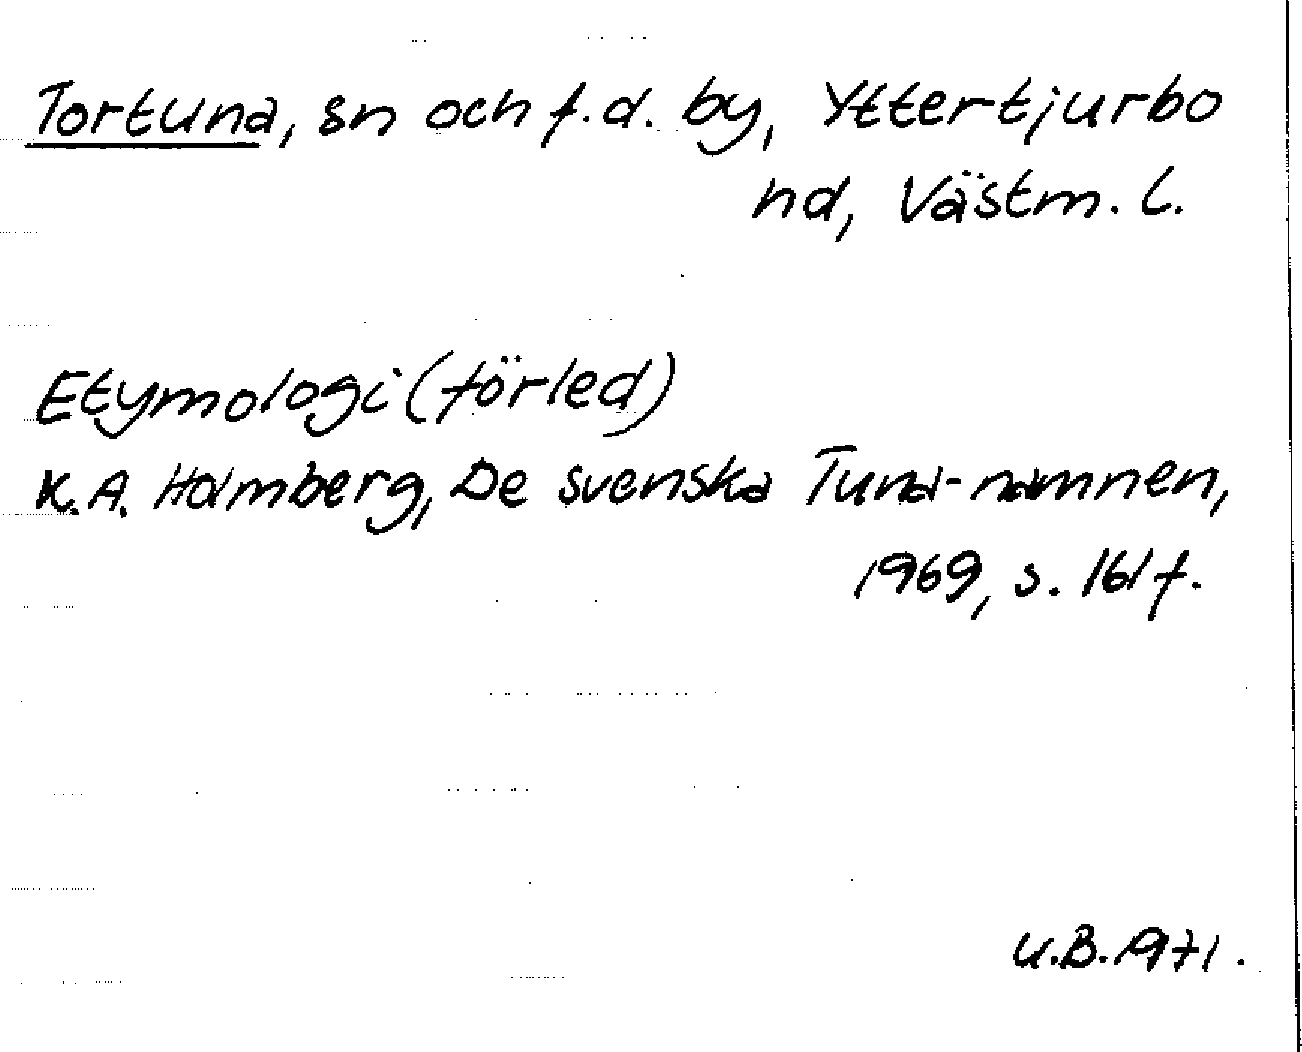 Tortuna, sn och f.d. by, Yttertjurbo
nd, Västm. l.
Etymologi (förled)
K.A. Holmberg, De svenska Tuna-namnen,
1969, s. 161 f.
U.B. 1971.